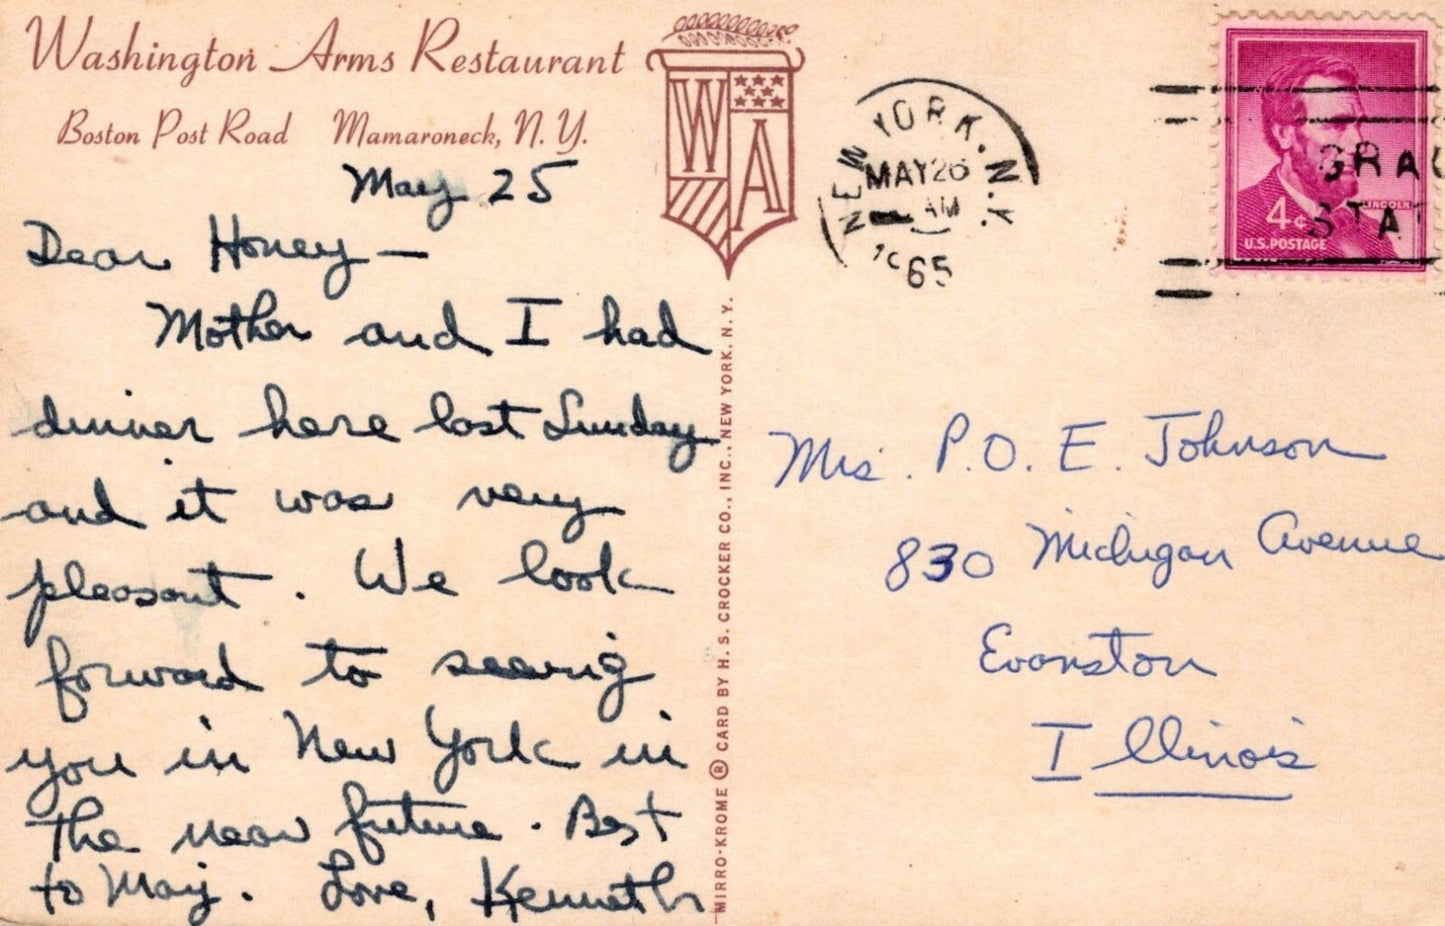 Washington Arms Restaurant
Boston Post Road Mamaroneck, N. Y.
W A
May 25
Dear Honey —
Mother and I had
dinner here last Sunday
and it was very
pleasant. We look
forward to seeing
you in New York in
the near future. Best
to May. Love, Kenneth
MIRRO-KROME ® CARD BY H. S. CROCKER CO., INC., NEW YORK, N. Y.
NEW YORK, N.Y.
MAY 26
AM
1965
GRAC
STAT
LINCOLN
4¢
U.S. POSTAGE
Mrs. P. O. E. Johnson
830 Michigan Avenue
Evanston
Illinois